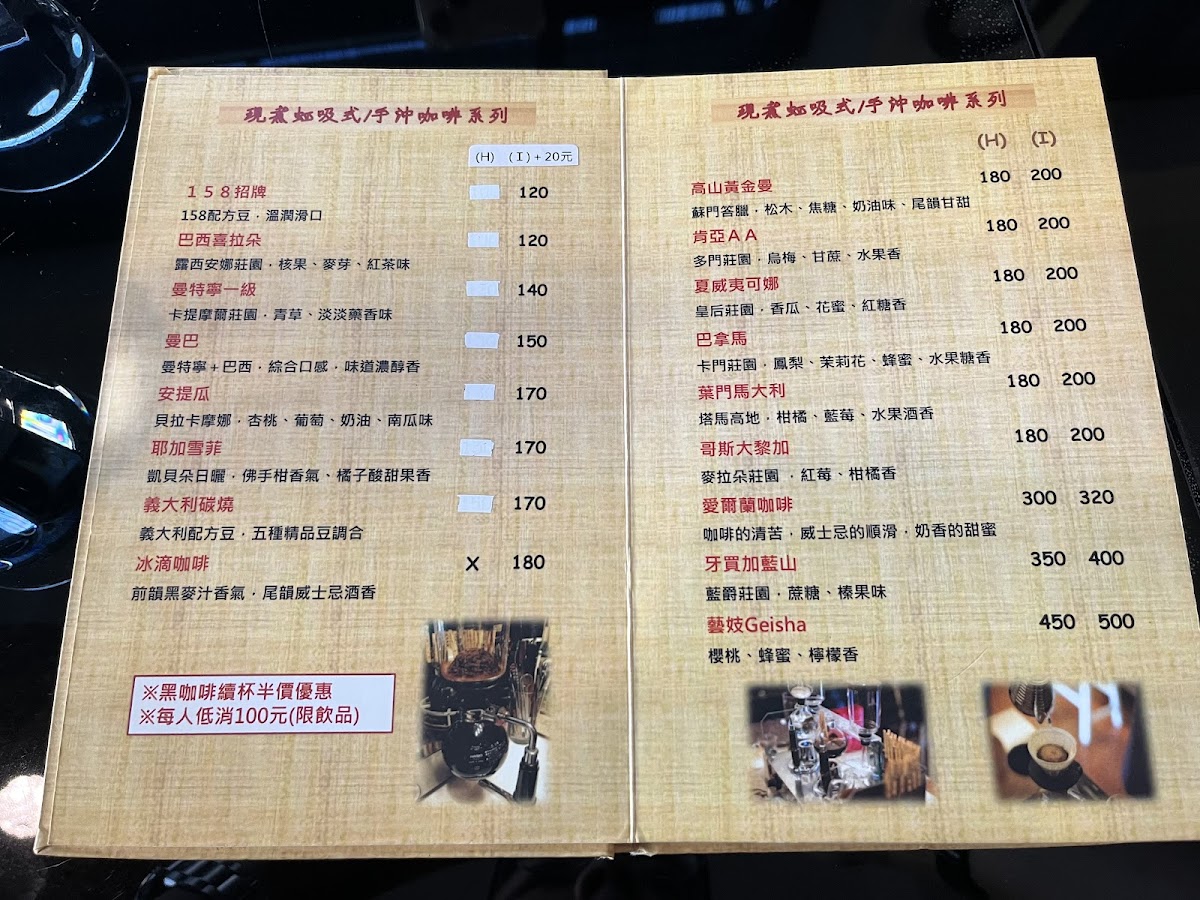 現煮虹吸式/手沖咖啡系列
(H) (I)+20元
158招牌 120
158配方豆,溫潤滑口
巴西喜拉朵 120
露西安娜莊園,核果、麥芽、紅茶味
曼特寧一級 140
卡提摩爾莊園,青草、淡淡藥香味
曼巴 150
曼特寧+巴西,綜合口感,味道濃醇香
安提瓜 170
貝拉卡摩娜,杏桃、葡萄、奶油、南瓜味
耶加雪菲 170
凱貝朵日曬,佛手柑香氣、橘子酸甜果香
義大利碳燒 170
義大利配方豆,五種精品豆調合
冰滴咖啡 X 180
前韻黑麥汁香氣,尾韻威士忌酒香
※黑咖啡續杯半價優惠
※每人低消100元(限飲品)
現煮虹吸式/手沖咖啡系列
(H) (I)
高山黃金曼 180 200
蘇門答臘,松木、焦糖、奶油味、尾韻甘甜
肯亞AA 180 200
多門莊園,烏梅、甘蔗、水果香
夏威夷可娜 180 200
皇后莊園,香瓜、花蜜、紅糖香
巴拿馬 180 200
卡門莊園,鳳梨、茉莉花、蜂蜜、水果糖香
葉門馬大利 180 200
塔馬高地,柑橘、藍莓、水果酒香
哥斯大黎加 180 200
麥拉朵莊園,紅莓、柑橘香
愛爾蘭咖啡 300 320
咖啡的清苦,威士忌的順滑,奶香的甜蜜
牙買加藍山 350 400
藍爵莊園,蔗糖、榛果味
藝妓Geisha 450 500
櫻桃、蜂蜜、檸檬香